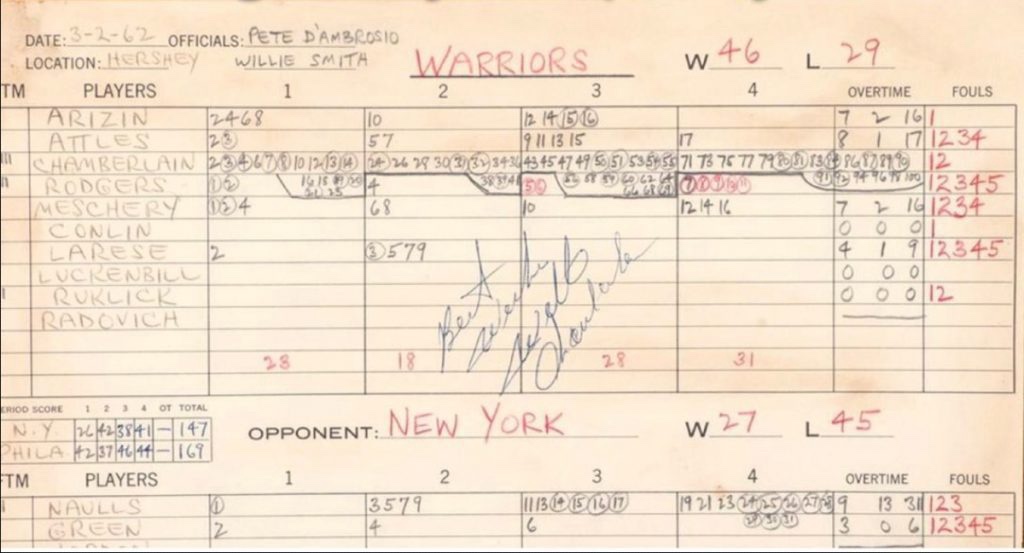 DATE: 3-2-62 OFFICIALS: PETE D'AMBROSIO
LOCATION: HERSHEY WILLIE SMITH WARRIORS W 46 L 29
TM PLAYERS 1 2 3 4 OVERTIME FOULS
ARIZIN 2 4 6 8 10 12 14 15 16 7 2 16 1
ATTLES 2 3 5 7 9 11 13 15 17 8 1 17 1234
CHAMBERLAIN 2 3 4 6 7 8 10 12 13 14 24 26 28 29 30 31 32 34 36 43 45 47 49 50 51 53 54 55 71 73 75 77 79 80 81 83 84 86 87 89 90 12
RODGERS 1 2 16 18 19 20 21 23 4 38 39 41 5 6 58 59 60 62 64 66 68 69 7 8 9 10 11 91 92 94 96 98 100 12345
MESCHERY 1 2 4 6 8 10 12 14 16 7 2 16 1234
CONLIN 0 0 0 1
LARESE 2 3 5 7 9 4 1 9 12345
LUCKENBILL 0 0 0
RUKLICK 0 0 0 12
RADOVICH
23 18 28 31
Best
Wilt
Chamberlain
PERIOD SCORE 1 2 3 4 OT TOTAL
N.Y. 26 42 38 41 — 147
PHILA 42 37 46 44 — 169
OPPONENT: NEW YORK W 27 L 45
FTM PLAYERS 1 2 3 4 OVERTIME FOULS
NAULLS 1 3 5 7 9 11 13 14 15 16 17 19 21 23 24 25 26 27 28 29 30 31 9 13 31 123
GREEN 2 4 6 3 0 6 12345